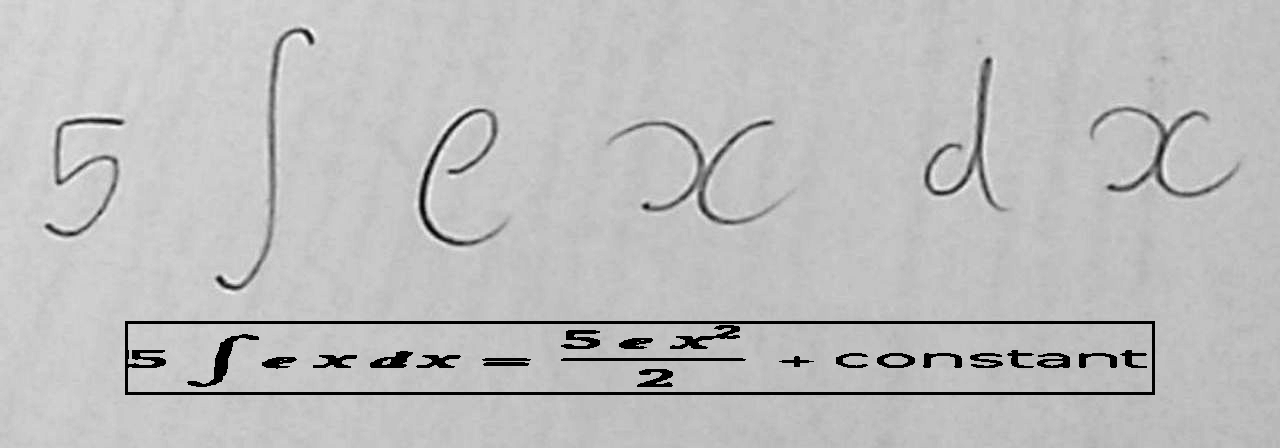 5 ∫ e x d x
5 ∫ e x dx = 5 e x² / 2 + constant